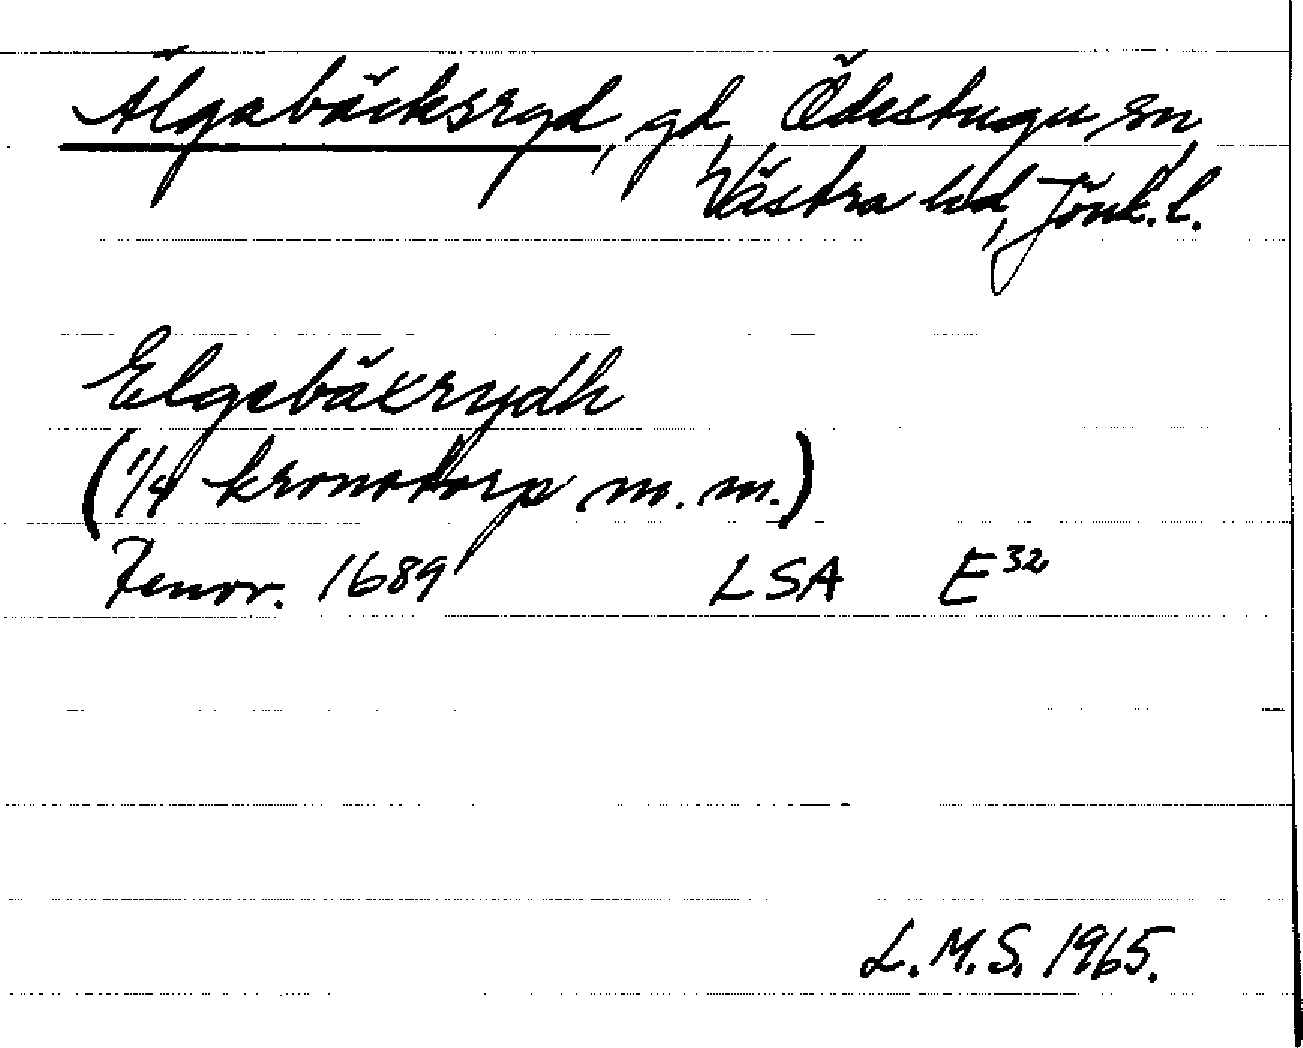 Älgabäcksryd, gd, Ödestugu sn,
Västra hd, Jönk. l.
Elgebäxrydh
(1/4 kronotorp m. m.)
1689 LSA E32
L. M. S. 1965.